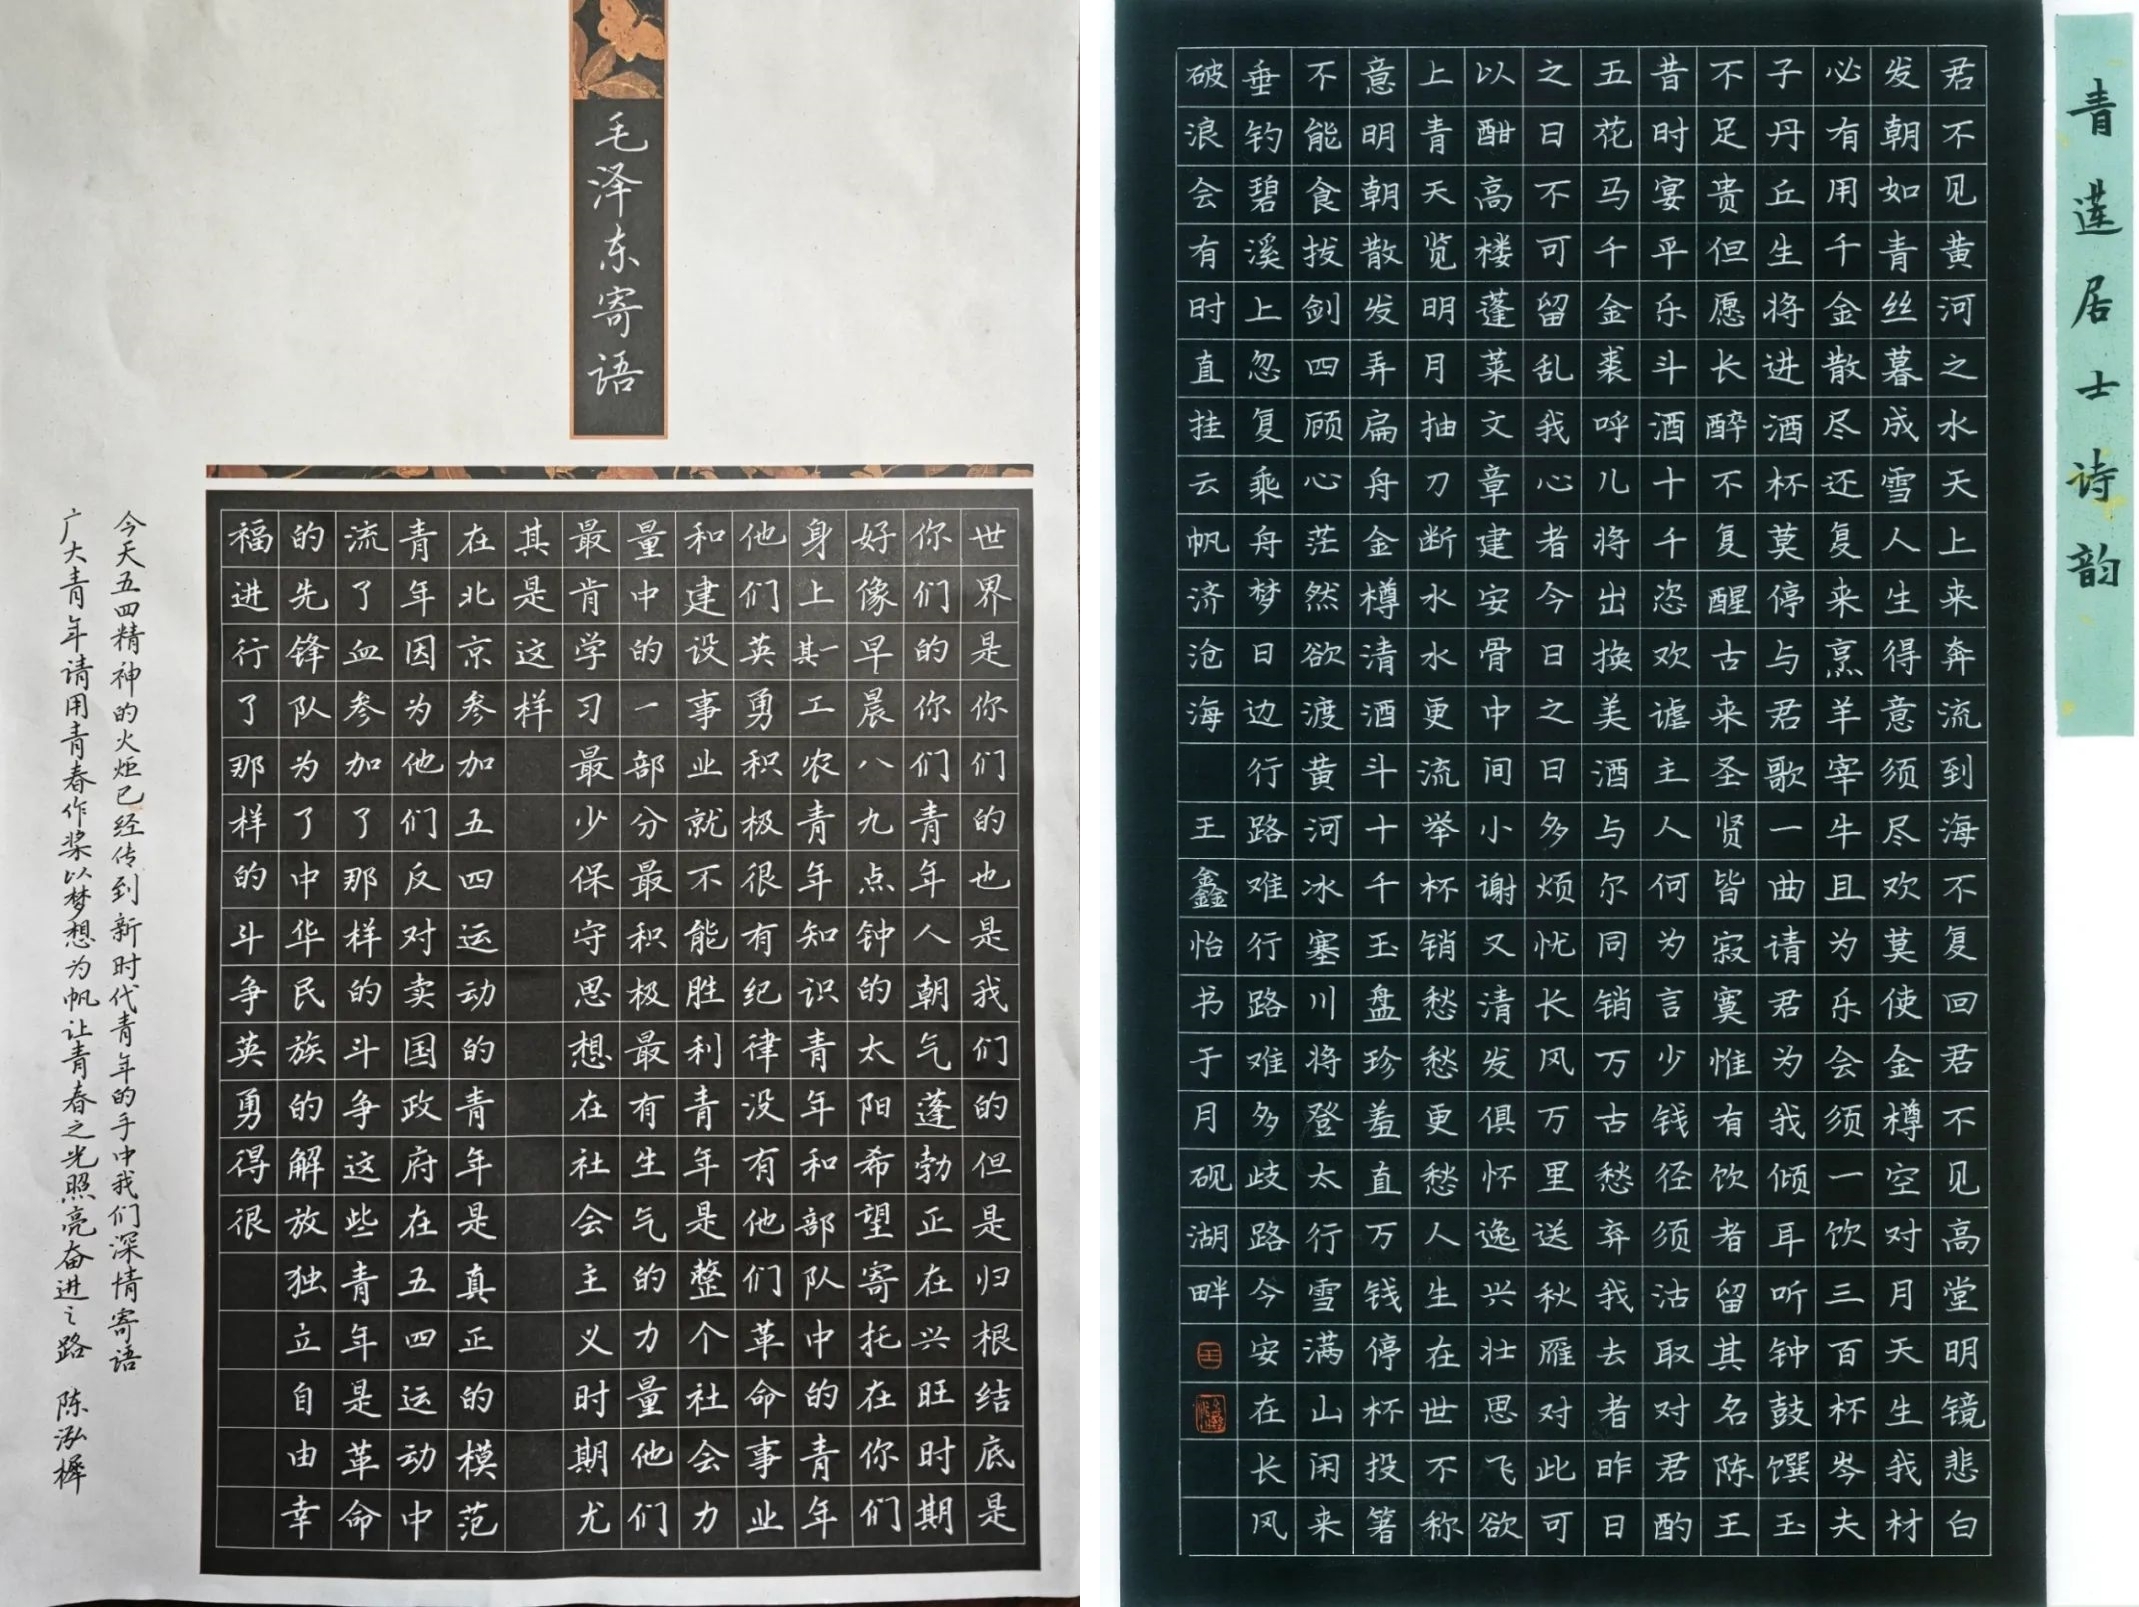 毛泽东寄语
世界是你们的也是我们的但是归根结底是
你们的你们青年人朝气蓬勃正在兴旺时期
好像早晨八九点钟的太阳希望寄托在你们
身上其一工农青年知识青年和部队中的青年
他们英勇积极很有纪律没有他们革命事业
和建设事业就不能胜利青年是整个社会力
量中的一部分最积极最有生气的力量他们
最肯学习最少保守思想在社会主义时期尤
其是这样
在北京参加五四运动的青年是真正的模范
青年因为他们反对卖国政府在五四运动中
流了血参加了那样的斗争这些青年是革命
的先锋队为了中华民族的解放独立自由幸
福进行了那样的斗争英勇得很
今天五四精神的火炬已经传到新时代青年的手中我们深情寄语
广大青年请用青春作桨以梦想为帆让青春之光照亮奋进之路 陈泓樨
青莲居士诗韵
君不见黄河之水天上来奔流到海不复回君不见高堂明镜悲白
发朝如青丝暮成雪人生得意须尽欢莫使金樽空对月天生我材
必有用千金散尽还复来烹羊宰牛且为乐会须一饮三百杯岑夫
子丹丘生将进酒杯莫停与君歌一曲请君为我倾耳听钟鼓馔玉
不足贵但愿长醉不复醒古来圣贤皆寂寞惟有饮者留其名陈王
昔时宴平乐斗酒十千恣欢谑主人何为言少钱径须沽取对君酌
五花马千金裘呼儿将出换美酒与尔同销万古愁弃我去者昨日
之日不可留乱我心者今日之日多烦忧长风万里送秋雁对此可
以酣高楼蓬莱文章建安骨中间小谢又清发俱怀逸兴壮思飞欲
上青天览明月抽刀断水水更流举杯销愁愁更愁人生在世不称
意明朝散发弄扁舟金樽清酒斗十千玉盘珍羞直万钱停杯投箸
不能食拔剑四顾心茫然欲渡黄河冰塞川将登太行雪满山闲来
垂钓碧溪上忽复乘舟梦日边行路难行路难多歧路今安在长风
破浪会有时直挂云帆济沧海 王鑫怡书于月砚湖畔